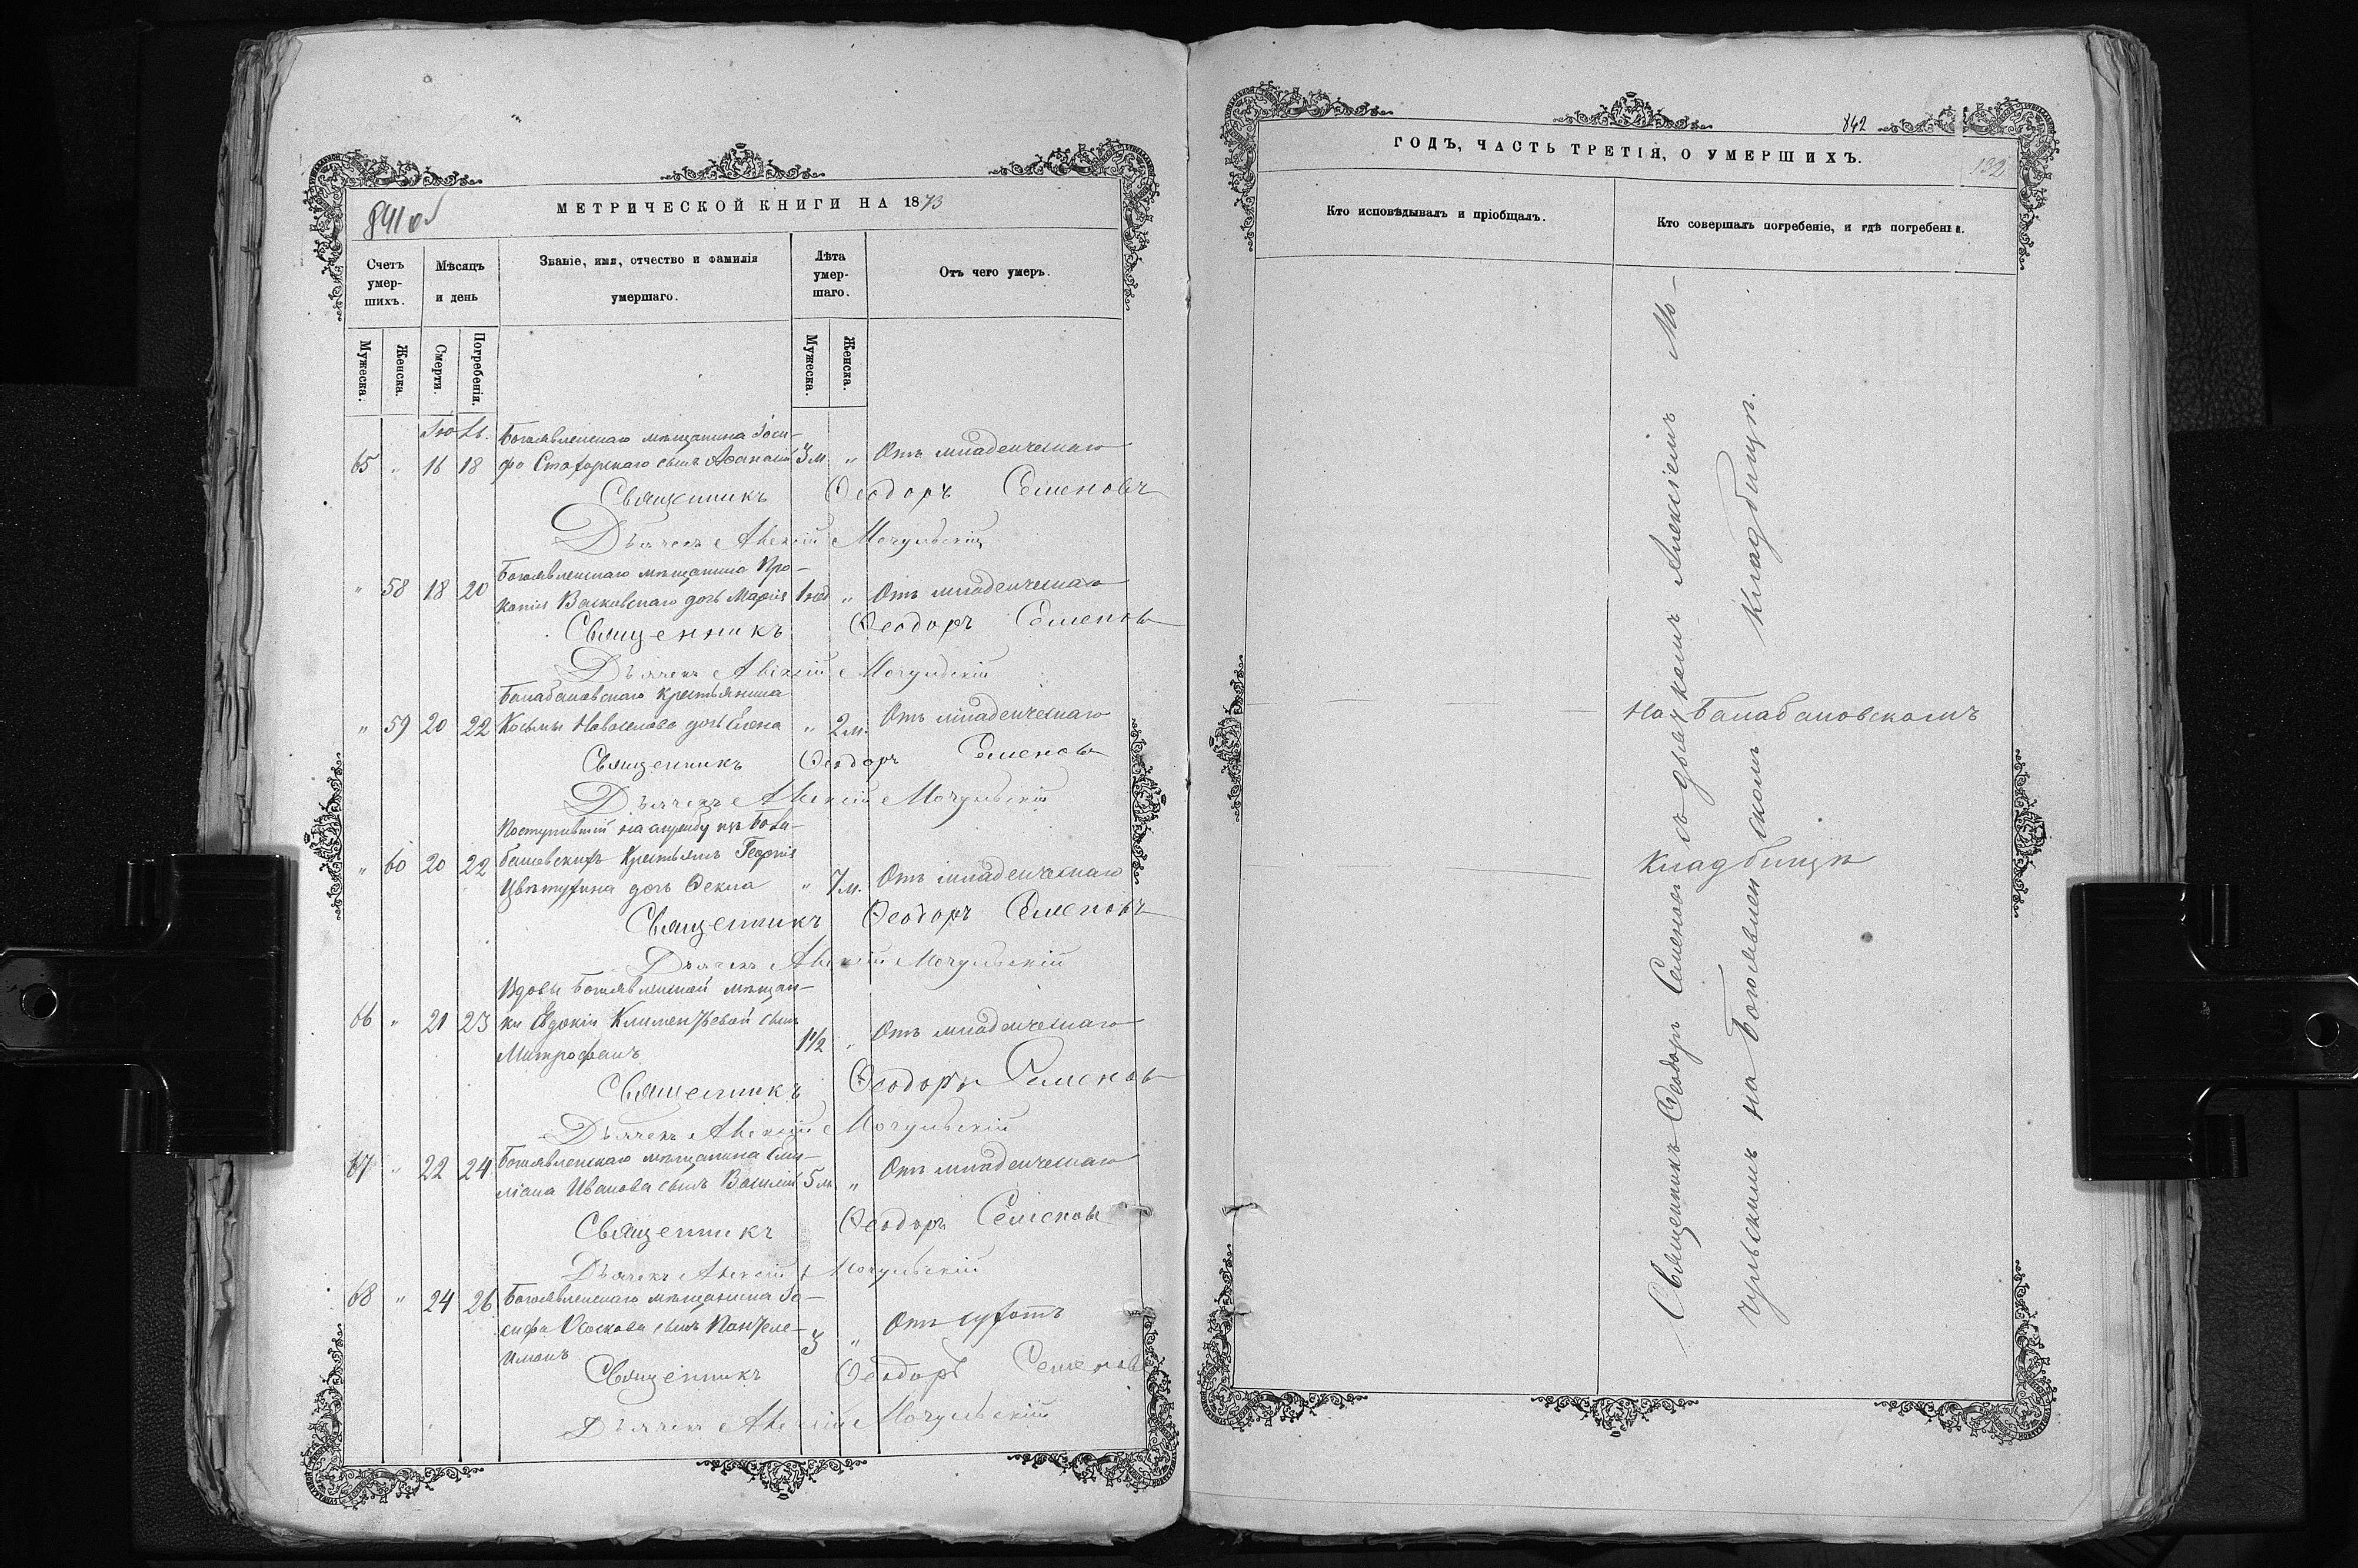 841 об
МЕТРИЧЕСКОЙ КНИГИ НА 1873
Счетъ умер-шихъ.
Мѣсяцъ и день
Званіе, имя, отчество и фамилія умершаго.
Лѣта умер-шаго.
Отъ чего умеръ.
Мужеска.
Женска.
Смерти.
Погребенія.
Мужеска.
Женска.
Іюль.
Богоявленскаго мѣщанина Іоси-
65 " 16 18 фа сынъ Аѳанасій 3 м. " Отъ младенческаго
Священникъ Ѳеодоръ Семеновъ
Дьячекъ Алексій Мочульскій
Богоявленскаго мѣщанина Про-
" 58 18 20 копія Васковскаго дочь Марія 1 год " Отъ младенческаго
Священникъ Ѳеодоръ Семеновъ
Дьячекъ Алексій Мочульскій
Балабановскаго крестьянина
" 59 20 22 Косьмы Новоселова дочь Елена " 2 м. Отъ младенческаго
Священникъ Ѳеодоръ Семеновъ
Дьячекъ Алексій Мочульскій
Поступившій на службу изъ Бала-
" 60 20 22 бановскихъ Крестьянъ Георгія
Цвѣтухина дочь Ѳекла " 7 м. Отъ младенческаго
Священникъ Ѳеодоръ Семеновъ
Дьячекъ Алексій Мочульскій
Вдовы Богоявленской мѣщан-
66 " 21 23 ки Евдокіи Климентьевой сынъ
Митрофанъ 1 1/2 " Отъ младенческаго
Священникъ Ѳеодоръ Семеновъ
Дьячекъ Алексій Мочульскій
67 " 22 24 Богоявленскаго мѣщанина Еми-
ліана Иванова сынъ Василій 5 м. " Отъ младенческаго
Священникъ Ѳеодоръ Семеновъ
Дьячекъ Алексій Мочульскій
68 " 24 26 Богоявленскаго мѣщанина Іо-
сифа сынъ Пантеле-
имонъ 3 " Отъ сухотъ
Священникъ Ѳеодоръ Семеновъ
Дьячекъ Алексій Мочульскій
842
ГОДЪ, ЧАСТЬ ТРЕТІЯ, О УМЕРШИХЪ.
132
Кто исповѣдывалъ и пріобщалъ.
Кто совершалъ погребеніе, и гдѣ погребены.
Священникъ Ѳеодоръ Семеновъ съ дьячкомъ Алексіемъ Мо-
чульскимъ на Богоявленскомъ Кладбищѣ.
На Балабановскомъ
Кладбищѣ